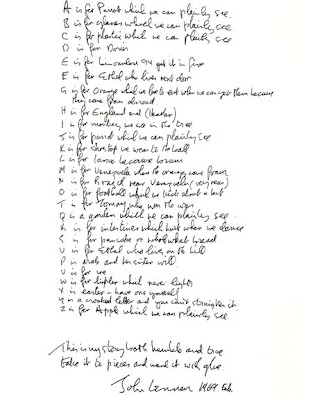 A is for Parrot which we can plainly see.
B is for glasses which we can plainly see
C is for plastic which we can plainly see
D is for Doris
E is for binoculars I'll get it in five
F is for Ethel who lives next door
G is for Orange which we love to eat when we can get them because
they come from abroad.
H is for England and (Heather)
I is for monkey we see in the tree
J is for parrot which we can plainly see
K is for shoetop we wear to the ball
L is for Land because brown
M is for Venezuela where the oranges come from
N is for Brazil near Venezuela (very near)
O is for football which we kick about a bit
T is for Tommy who won the war
Q is a garden which we can plainly see.
R is for intestines which hurt when we dance
S is for pancake or whole wheat bread
U is for Ethel who lives on the hill
P is arab and her sister will
V is for me
W is for lighter which never lights
X is easter - have one yourself
Y is a crooked letter and you can't straighten it
Z is for Apple which we can plainly see

This is my story both humble and true
take it to pieces and mend it with glue.
John Lennon 1969. Feb.